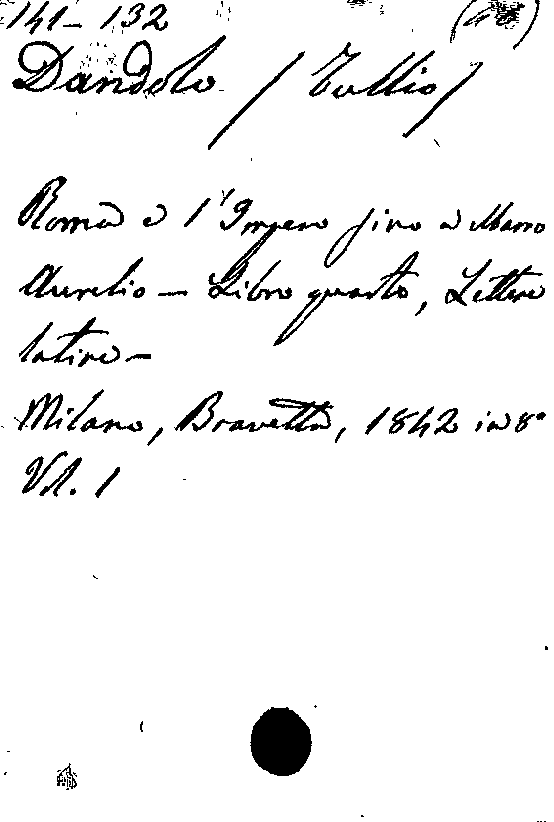 141-132
Dandolo /Tullio/
Roma e l'Impero fino a Marco
Aurelio - Libro quarto, Lettere
latine -
Milano, Bravetta, 1842 in 8°
Vol. 1